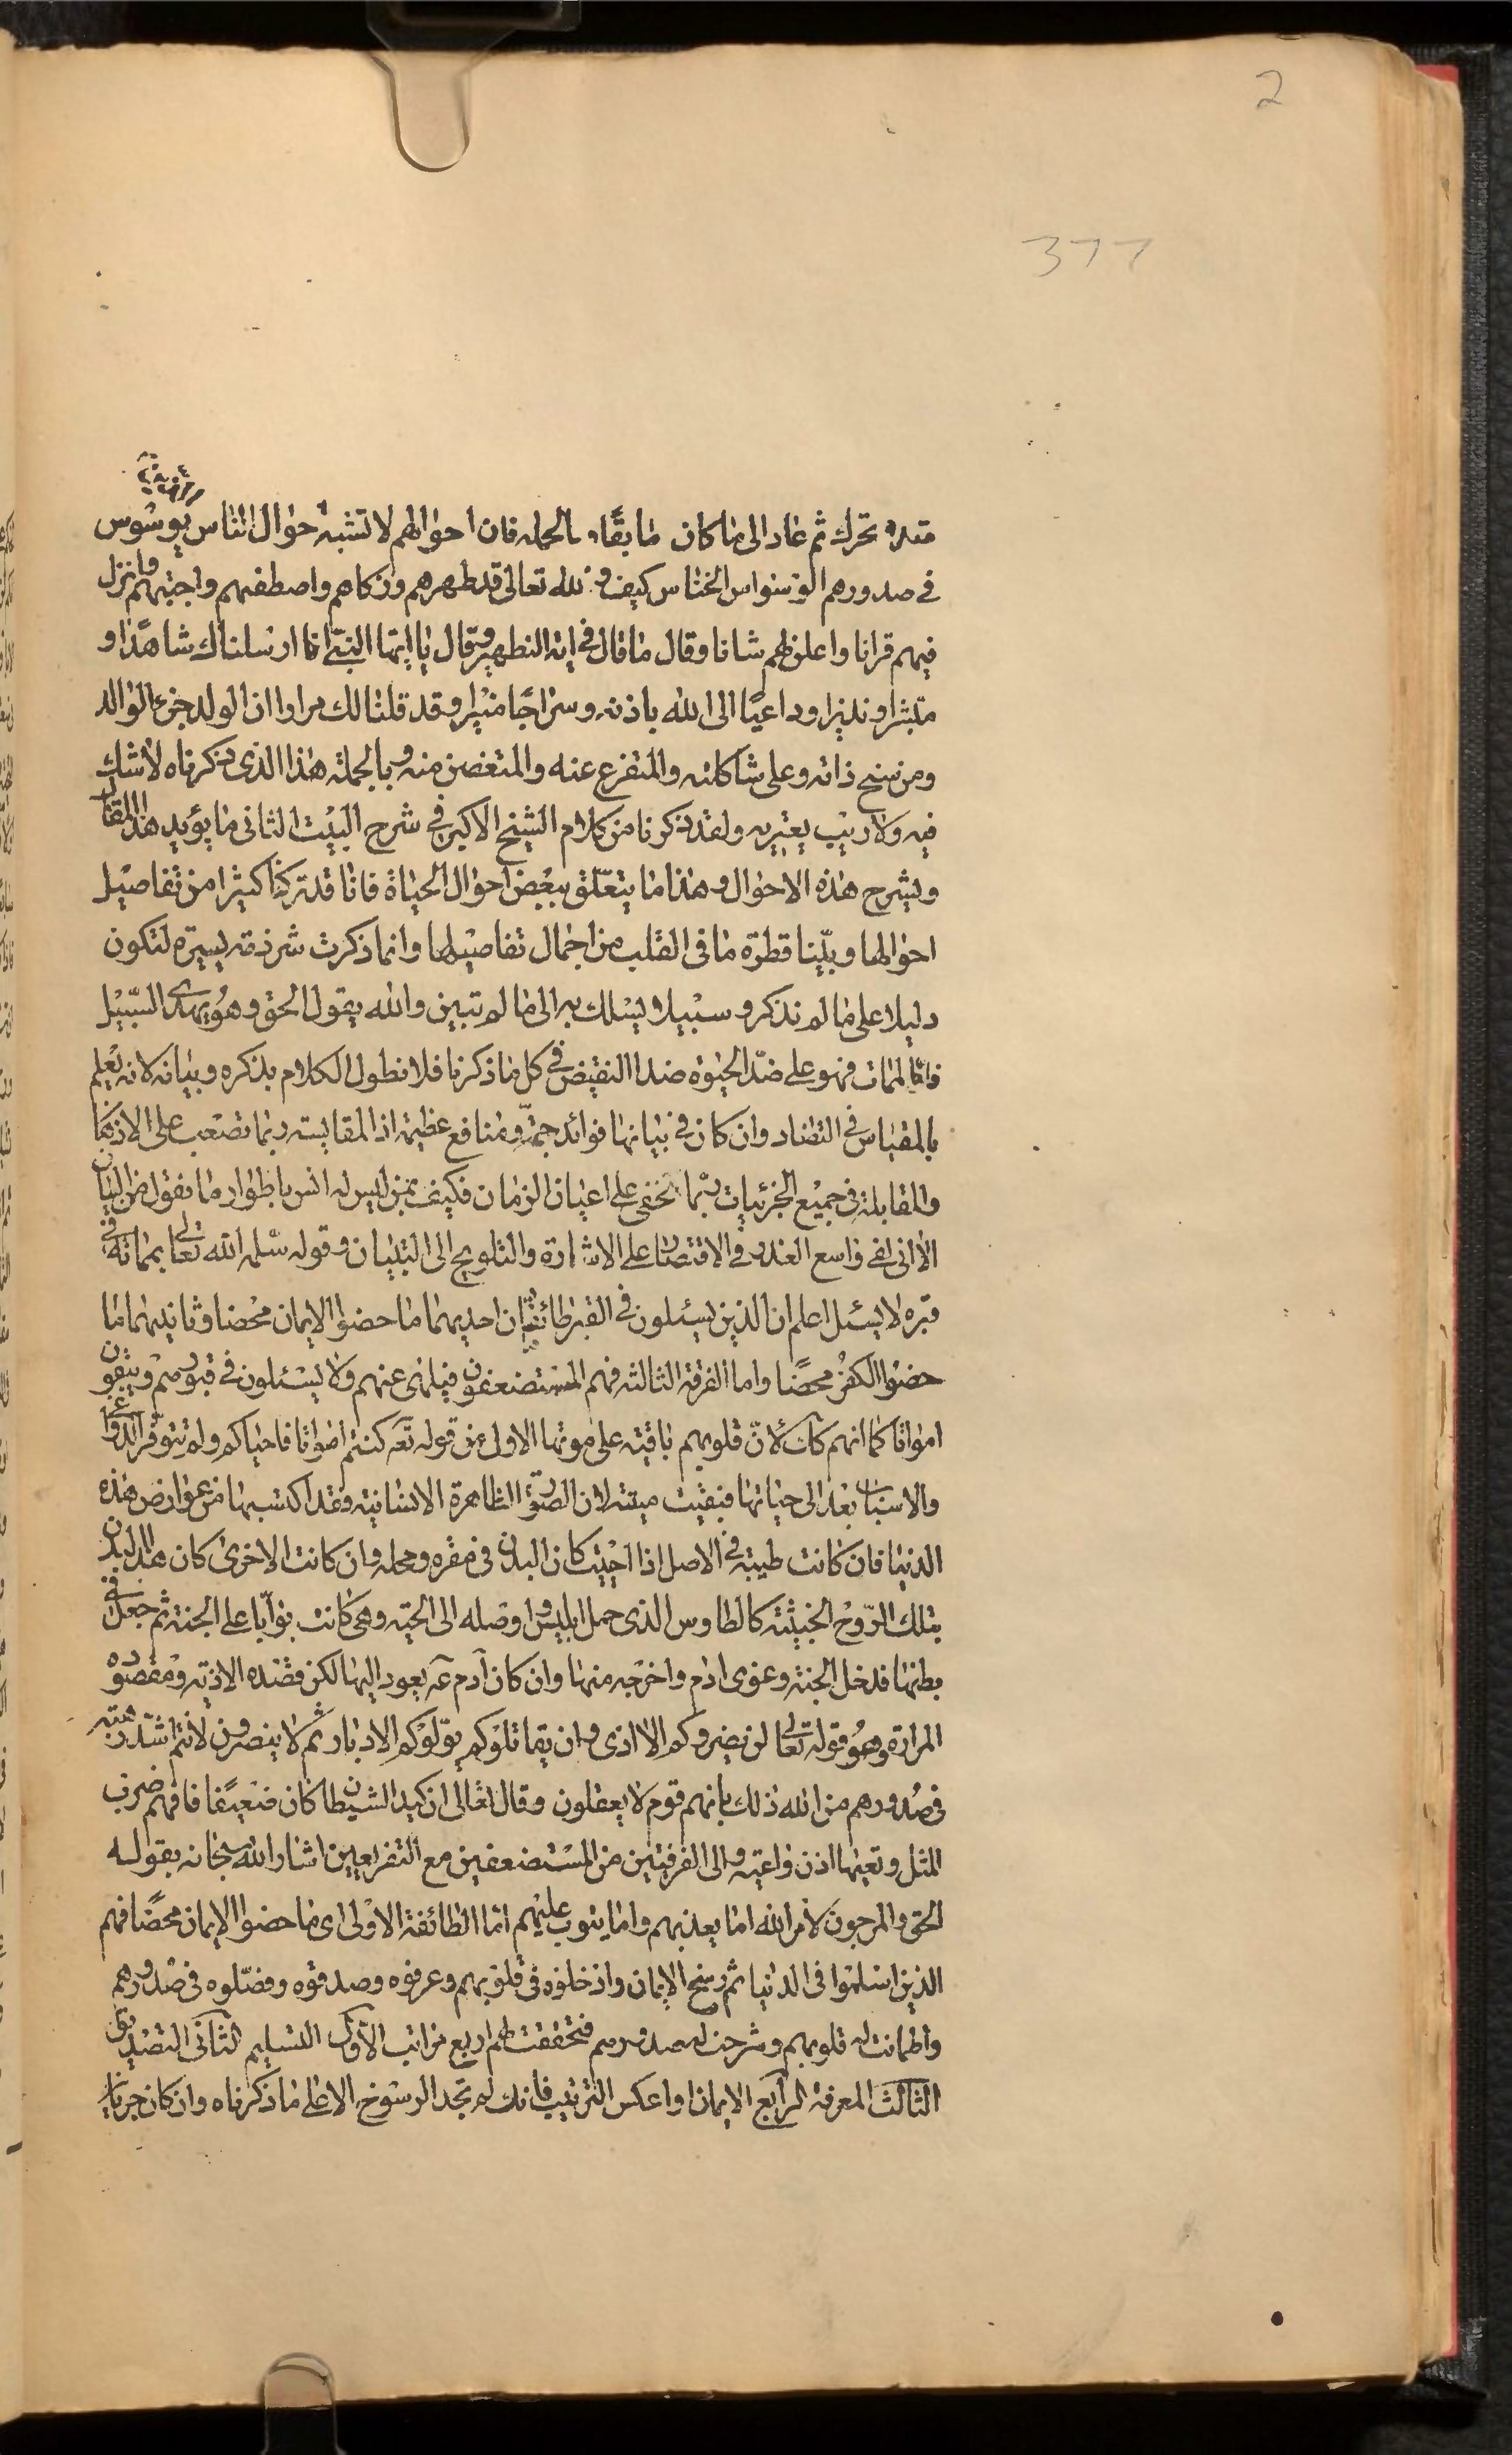 2
377
متدو تحرك ثم عاد الى ما كان سابقا و بالجمله فان احوالهم لا تشبه احوال الناس يوسوس
فى صدورهم الوسواس الخناس كيف و الله تعالى قد طهرهم وزكاهم واصطفيهم واجتبيهم وانزل
فيهم قرانا واعلى لهم شانا وقال ما قال فى اية التطهير وقال يا ايها النبى انا ارسلناك شاهدا و
مبشرا ونذيرا وداعيا الى الله باذنه وسراجا منيرا وقد قلنا لك مرارا ان الولد جزء الوالد
ومن سنخ ذاته وعلى شاكلته والمتفرع عنه والمتغصن منه وبالجملة هذا الذى ذكرناه لا شك
فيه ولا ريب يعتريه ولقد ذكرنا من كلام الشيخ الاكبر فى شرح البيت الثانى ما يؤيد هذا المقال
ويشرح هذه الاحوال وهذا ما يتعلق ببعض احوال الحياة فانا قد تركنا كثيرا من تفاصيل
احوالها وبينا قطرة ما فى القلب من اجمال تفاصيلها وانما ذكرت شرذمه يسيرة لتكون
دليلا على ما لم نذكر و سبيلا يسلك به الى ما لم تبين والله يقول الحق وهو يهدى السبيل
فاما الممات فهو على ضد الحيوة ضد النقيض فى كل ما ذكرنا فلا نطول الكلام بذكره وبيانه لانه يعلم
بالمقياس فى التضاد وان كان فى بيانها فوائد جمة ومنافع عظيمة اذ المقايسة ربما تصعب على الاذهان
والمقابلة فى جميع الجزئيات ربما تخفى على اعيان الزمان فكيف بمن ليس له انس باطوار ما نقول من البيان
الا انى لفى واسع العذر فى الاقتصار على الاشارة والتلويح الى التبيان وقوله سلمه الله تعالى بماته فى
قبره لا يسئل اعلم ان الذين يسئلون فى القبر طائفتان احديهما ما حضوا الايمان محضا وثانيهما ما
حضوا الكفر محضا واما الفرقة الثالثه فهم المستضعفون فيلهى عنهم ولا يسئلون فى قبورهم ويبقون
امواتا كما انهم كانت لان قلوبهم باقيته على موتها الاول من قوله تع كنتم امواتا فاحياكم ولم يتوفر الدواعى
والاسباب بعد الى حياتها فبقيت ميتته لان الصورة الظاهرة الانسانيه وقد اكتسبها من عوارض هذه
الدنيا فان كانت طيبة فى الاصل اذا احييت كان البدن فى مقره ومحله وان كانت الاخرى كان هذا البدن
بتلك الروح الخبيثته كالطاوس الذى حمل ابليس واوصله الى الحيه وهى كانت بوابا على الجنة ثم جعل فى
بطنها فدخل الجنة وغوى ادم واخرجه منها وان كان آدم ع يعود اليها لكن قصده الاذيه ومقصوده
المرارة وهو قوله تعالى لن يضروكم الا اذى وان يقاتلوكم يولوكم الادبار ثم لا ينصرون لانتم اشد رهبته
فى صدورهم من الله ذلك بانهم قوم لا يعقلون وقال تعالى ان كيد الشيطان كان ضعيفا فافهم ضرب
المثل وتعيها اذن واعيته والى الفرقتين من المستضعفين مع التفريعين اشار الله سبحانه بقوله
الحق والمرجون لامر الله اما يعذبهم واما يتوب عليهم اما الطائفة الاولى اى ما حضوا الايمان محضا فهم
الذين اسلموا فى الدنيا ثم رسخ الايمان وادخلوه فى قلوبهم وعرفوه وصدقوه وفضلوه فى صدورهم
واطمانت له قلوبهم وشرحت له صدورهم فتحققت لهم اربع مراتب الاول التسليم الثانى التصديق
الثالث المعرفة الرابع الايمان او اعكس الترتيب فانك لم تجد الرسوخ الا على ما ذكرناه وان كان جريان